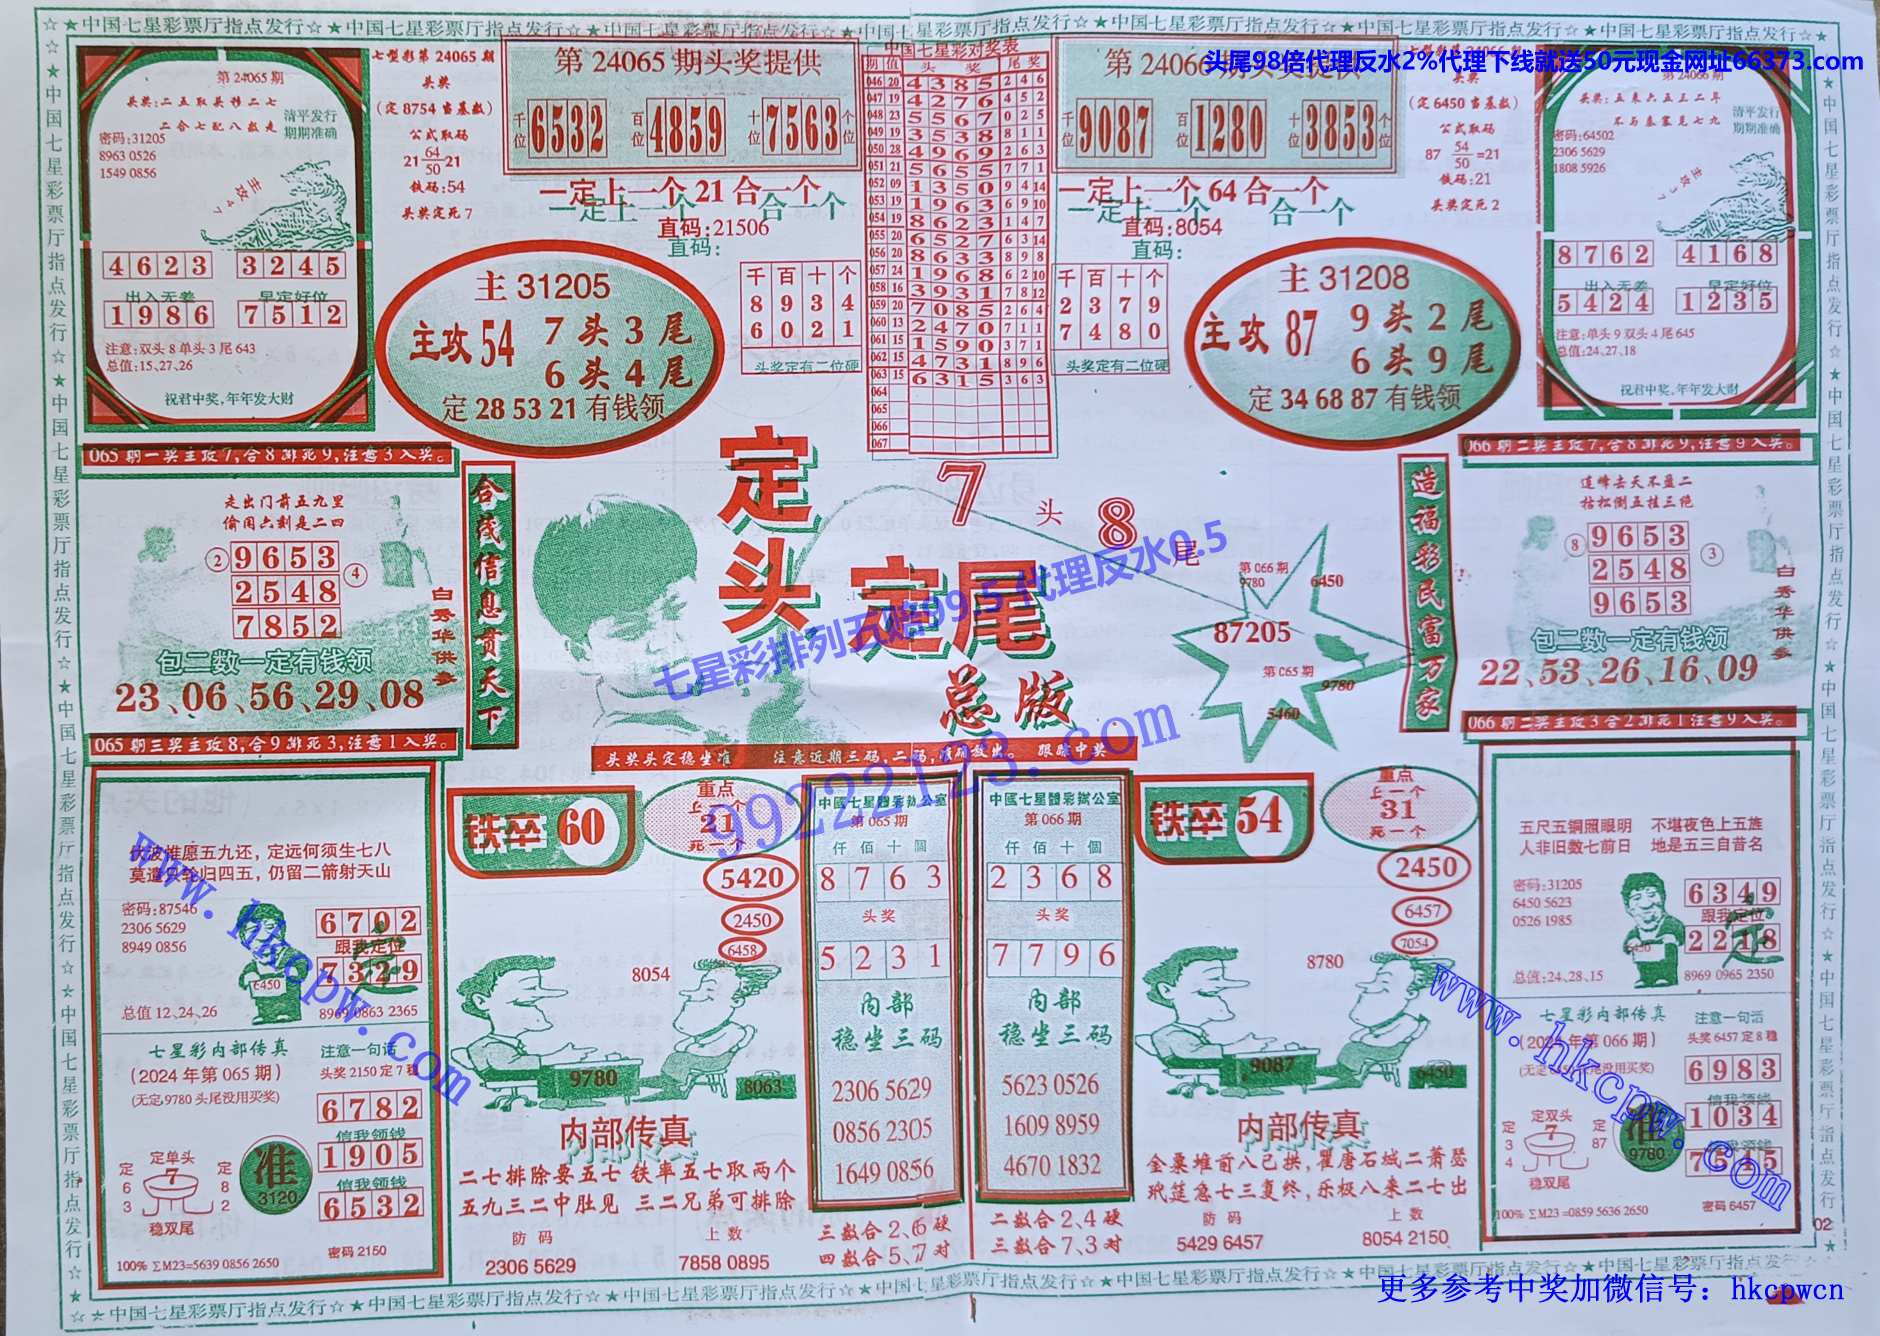 ☆★中国七星彩票厅指点发行☆★中国七星彩票厅指点发行☆★中国七星彩票厅指点发行☆★中国七星彩票厅指点发行☆★中国七星彩票厅指点发行☆★中国七星彩票厅指点发行☆
头尾98倍代理反水2%代理下线就送50元现金网址66373.com
第24065期
头奖:二五取头移二七
二合七配八数走
清平发行
期期准确
密码:31205
8963 0526
1549 0856
主攻47
4623 3245
出入无差 早定好位
1986 7512
注意:双头8单头3尾643
总值:15、27、26
祝君中奖,年年发大财
七型彩第24065期
头奖
(定8754当基数)
公式取码
21 64/50 21
铁码:54
头奖定死7
第24065期头奖提供
千位 6532 百位 4859 十位 7563 个位
一定上一个21合一个
直码:21506
直码:
主31205
主攻54 7头3尾
6头4尾
定28 53 21有钱领
千百十个
8934
6021
头奖定有二位硬
中国七星彩对奖表
期 值 头奖 尾奖
046 20 4385 2 4 6
047 19 4276 4 5 2
048 23 5567 0 2 5
049 19 3538 8 1 1
050 28 4969 2 6 3
051 21 5655 7 7 1
052 09 1350 9 4 14
053 19 1963 6 9 10
054 19 8623 1 4 7
055 20 6527 6 3 14
056 20 8633 8 9 8
057 24 1968 6 2 10
058 16 3931 7 8 12
059 20 7085 2 6 4
060 13 2470 7 1 1
061 15 1590 3 7 1
062 15 4731 8 9 6
063 15 6315 3 6 3
064
065
066
067
第24066期头奖提供
千位 9087 百位 1280 十位 3853 个位
一定上一个64合一个
直码:8054
直码:
千百十个
2379
7480
头奖定有二位硬
主31208
主攻87 9头2尾
6头9尾
定34 68 87有钱领
头奖
(定6450当基数)
公式取码
87 54/50=21
铁码:21
头奖定死2
第24066期
清平发行
期期准确
密码:64502
2306 5629
1808 5926
8762 4168
出入无差 早定好位
5424 1235
注意:单头9双头4尾645
总值:24、27、18
祝君中奖,年年发大财
065期一奖主攻7,合8排死9,注意3入奖。
066期二奖主攻7,合8排死9,注意9入奖。
走出门前五九里
偷闲六刻是二四
② 9653
2548 ④
7852
包二数一定有钱领
白秀华供参
23、06、56、29、08
合线信息贯天下
定头定尾
总版
7头8尾
七星彩排列五赔99.5 代理反水0.5
99222123.com
第066期
9780
6450
87205
第065期
9780
5460
造福彩民富万家
道峰去天不盈二
枯松倒五挂三绝
⑧ 9653 ③
2548
9653
包二数一定有钱领
白秀华供参
22、53、26、16、09
065期三奖主攻8,合9排死3,注意1入奖。
头奖头定稳坐准 注意近期三码,二码,准确放出。 跟踪中奖
066期二奖主攻3合2排死1注意9入奖。
伏波惟愿五九还,定远何须生七八
莫遣只轮归四五,仍留二箭射天山
密码:87546
2306 5629
8949 0856
6450
6702
跟我定位
7329
总值12、24、26
8969 0863 2365
七星彩内部传真
(2024年第065期)
(无定9780头尾没用买奖)
定单头
7
定63
定82
稳双尾
准
3120
注意一句话
头奖2150定7稳
6782
信我领钱
1905
信我领钱
6532
密码2150
100% ∑M23=5639 0856 2650
铁卒60
重点
上一个
21
死一个
5420
2450
6458
8054
9780
8063
内部传真
二七排除要五七 铁率五七取两个
五九三二中肚见 三二兄弟可排除
防码 上数
2306 5629 7858 0895
中國七星體彩辦公室
第065期
仟佰十個
8763
头奖
5231
内部
稳坐三码
2306 5629
0856 2305
1649 0856
三数合2、6硬
四数合5、7对
中國七星體彩辦公室
第066期
仟佰十個
2368
头奖
7796
内部
稳坐三码
5623 0526
1609 8959
4670 1832
二数合2、4硬
三数合7、3对
铁卒54
重点
上一个
31
死一个
2450
6457
7054
8780
9087
6450
内部传真
金粟堆前八已拱,瞿唐石城二萧瑟
玳筵急七三复终,乐极八来二七出
防码 上数
5429 6457 8054 2150
五尺五铜照眼明 不堪夜色上五旌
人非旧数七前日 地是五三自昔名
密码:31205
6450 5623
0526 1985
6450
6349
跟我定位
2218
总值:24、28、15
8969 0965 2350
七星彩内部传真
(2024年第066期)
定双头
7
定34
定87
稳双尾
准
9780
注意一句话
头奖6457定8稳
6983
信我领钱
1034
7545
密码6457
100% ∑M23=0859 5636 2650
www.hkcpw.com
www.hkcpw.com
更多参考中奖加微信号: hkcpwcn